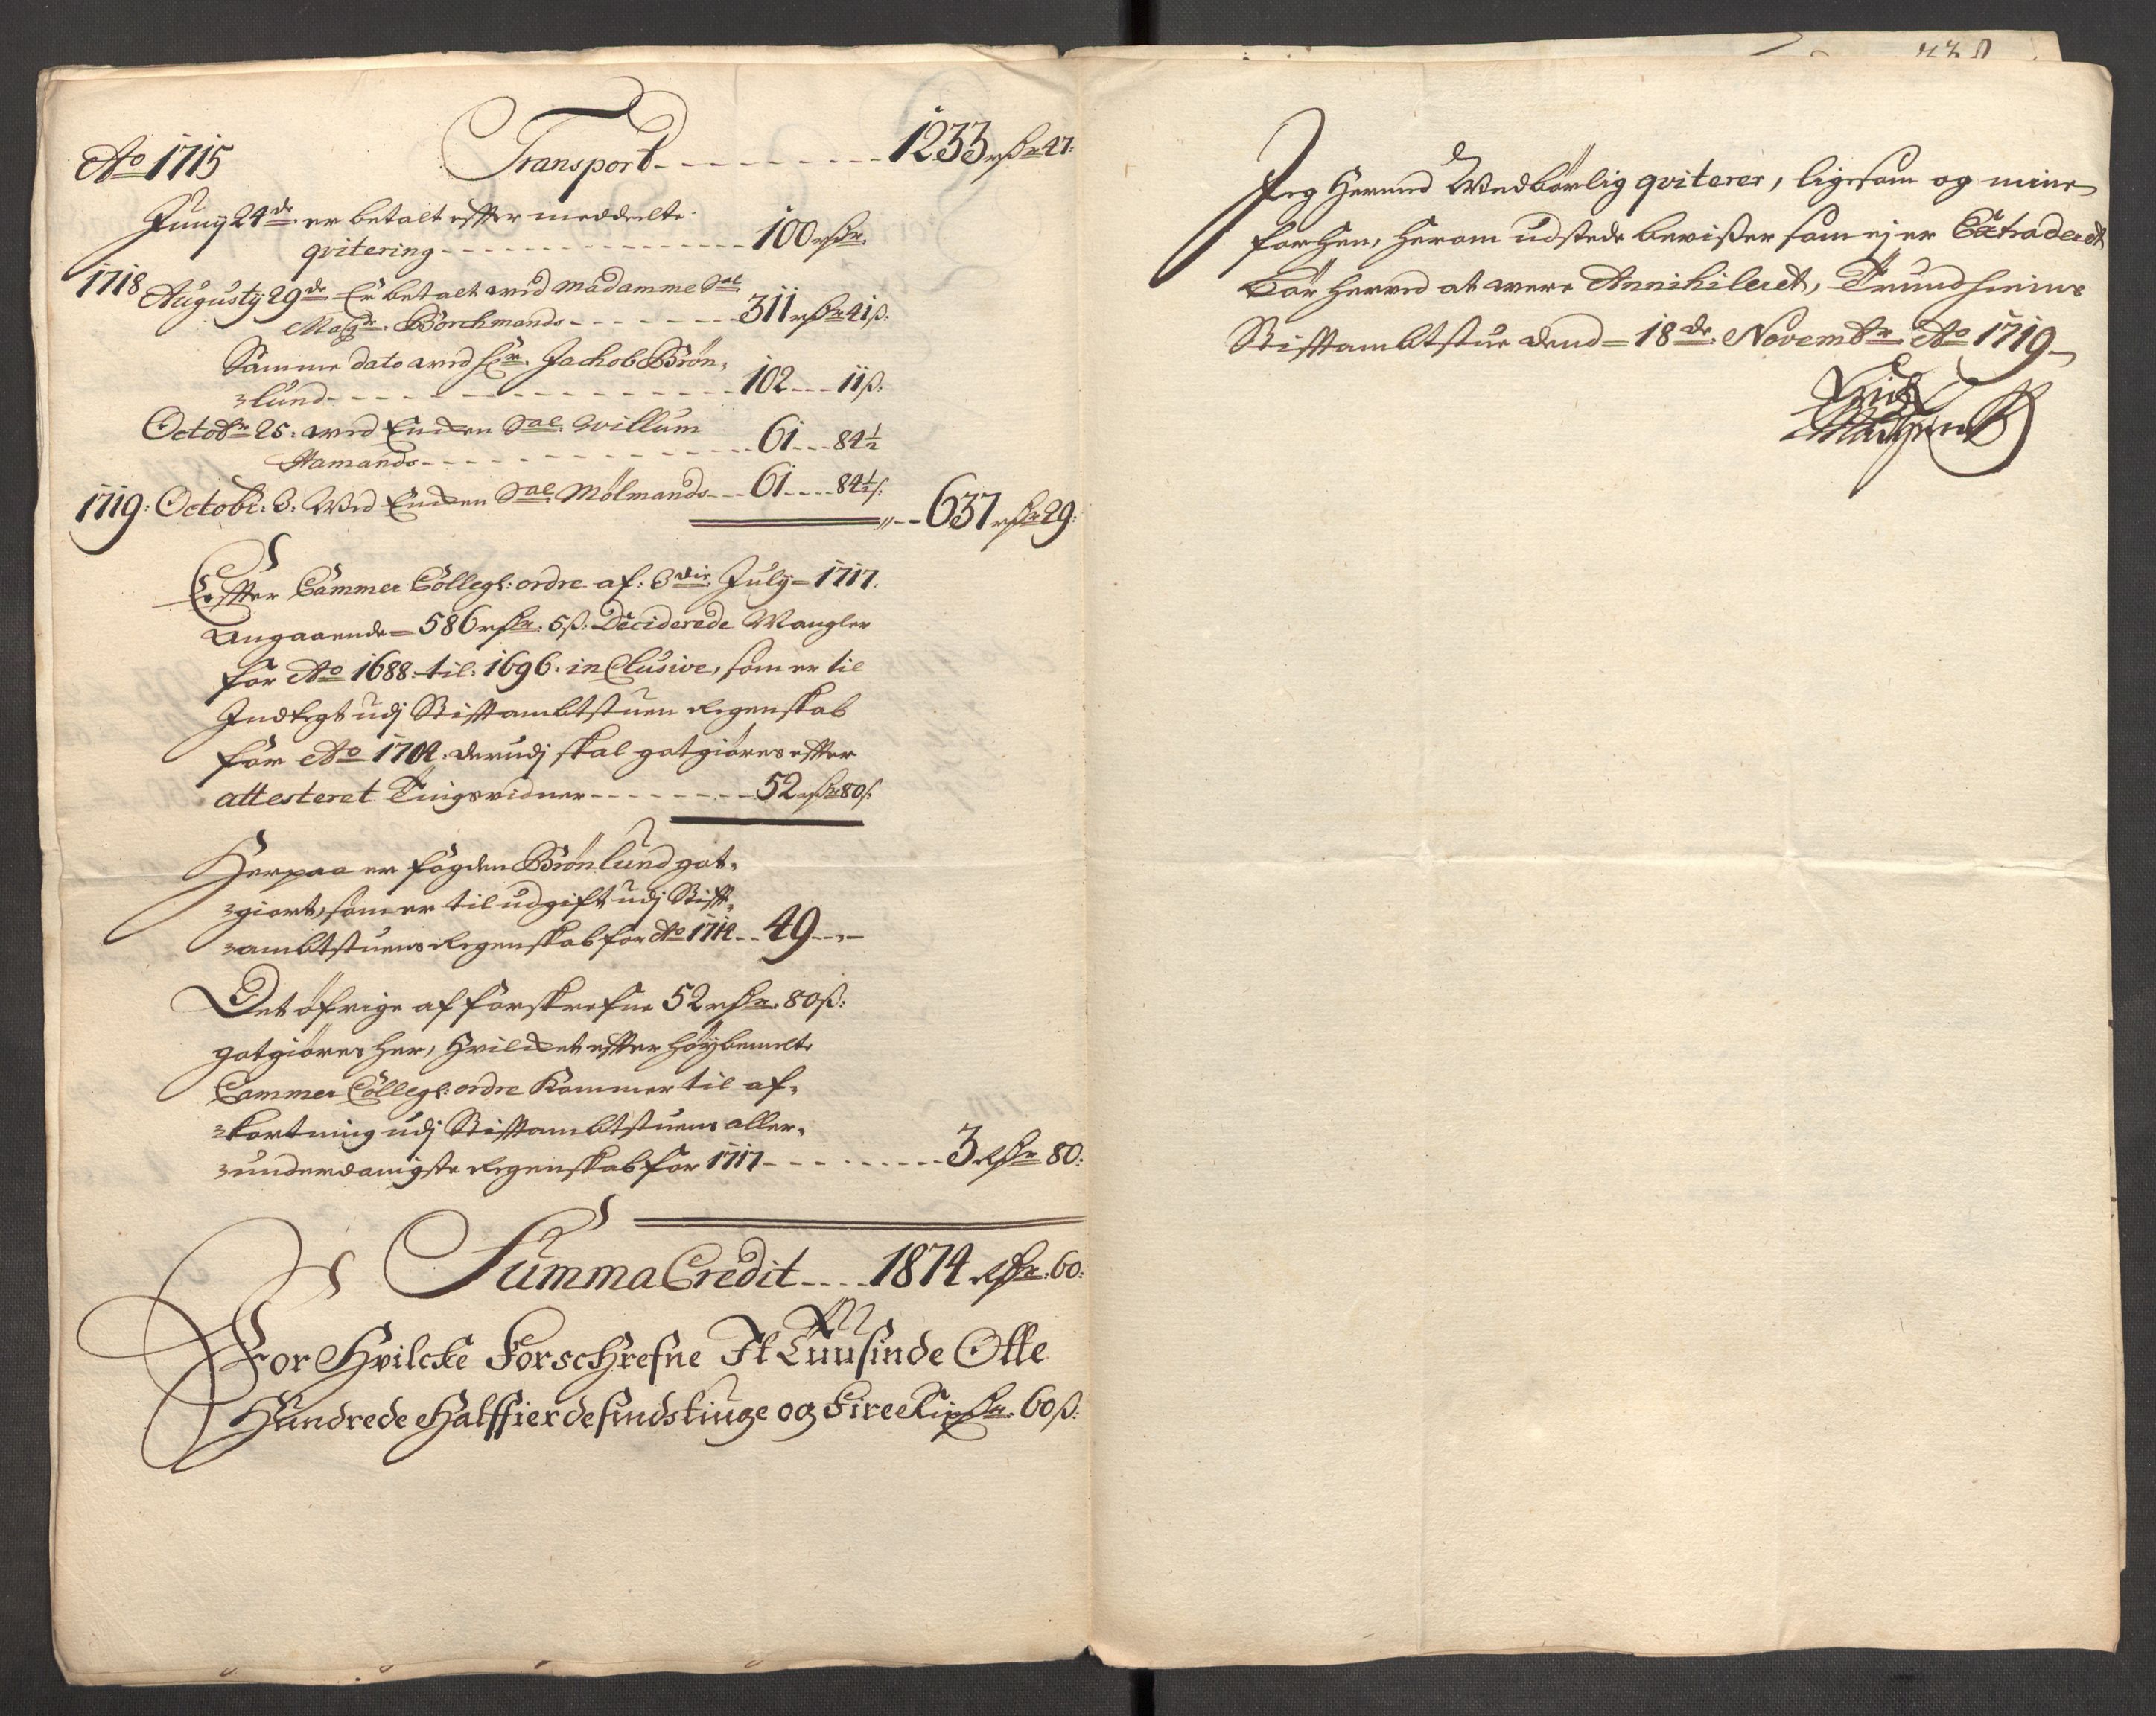 Transport - - - - - - - - - 1233 rdr 47:
Ao 1715
Junij 24de er betalt effter meddeelte
qvitering - - - - - - - - - 100 rdr.
1718 Augustij 29de Er betalt med Madamme Sal.
Magr. Borchmands - - - - - - 311 rdr 41 ß:
Samme dato med hr. Jachob Brön-
lund - - - - - - - - - 102 - - - 11 ß:
Octobr 25: med Encken Sal. Willum
Hamands - - - - - - - - - 61 - - - 84½
1719: Octobr: 3. Med Encken Sal. Mölmands - - - 61 - - - 84½ ß:
- - 637 rdr 29:
Effter Cammer Collegs: ordre af: 3die July = 1717.
Angaaende = 586 rdr. 5 ß: Deciderede Mangler
for Ao 1688 til: 1696. inClusive, som er til
Indtegt udj Stifftambtstuen Regenskab
for Ao 1704. derudj skal gotgiöres effter
attesteret Tingsvidner - - - - - - - - 52 rdr 80 ß:
Herpaa er fogden Brönlund got-
giort, som er til udgift udj Stifft-
ambtstuens Regenskab for Ao 1714 - - 49 - - -
Det öfrige af forskrefne 52 rdr. 80 ß:
gotgiöres her, hvilcket effter höybemelte
Cammer Collegs: ordre kommer til af-
kortning udj Stifftambtstuens aller-
underdanigste Regenskab for 1717 - - - - - - - - 3 rdr 80:
Summa Credit - - - - 1874 Rdr: 60:
For Hvilcke Forschrefne It Tuusinde Otte
Hundrede Halffierdesindstiuge og Fire Rixdr. 60 ß:
Jeg Hermed Wedbörlig qviterer, ligesom og mine
forhen, herom udstede bevißer som ej er Extraderet
bör herved at være Annihileret, Trundhiems
Stifftambtstue dend = 18de Novembr Ao 1719